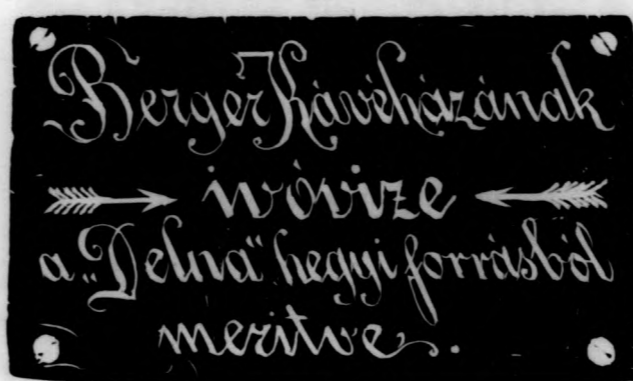 Berger Kávéházának
ivóvize
a „Delna“ hegyi forrásból
meritve.